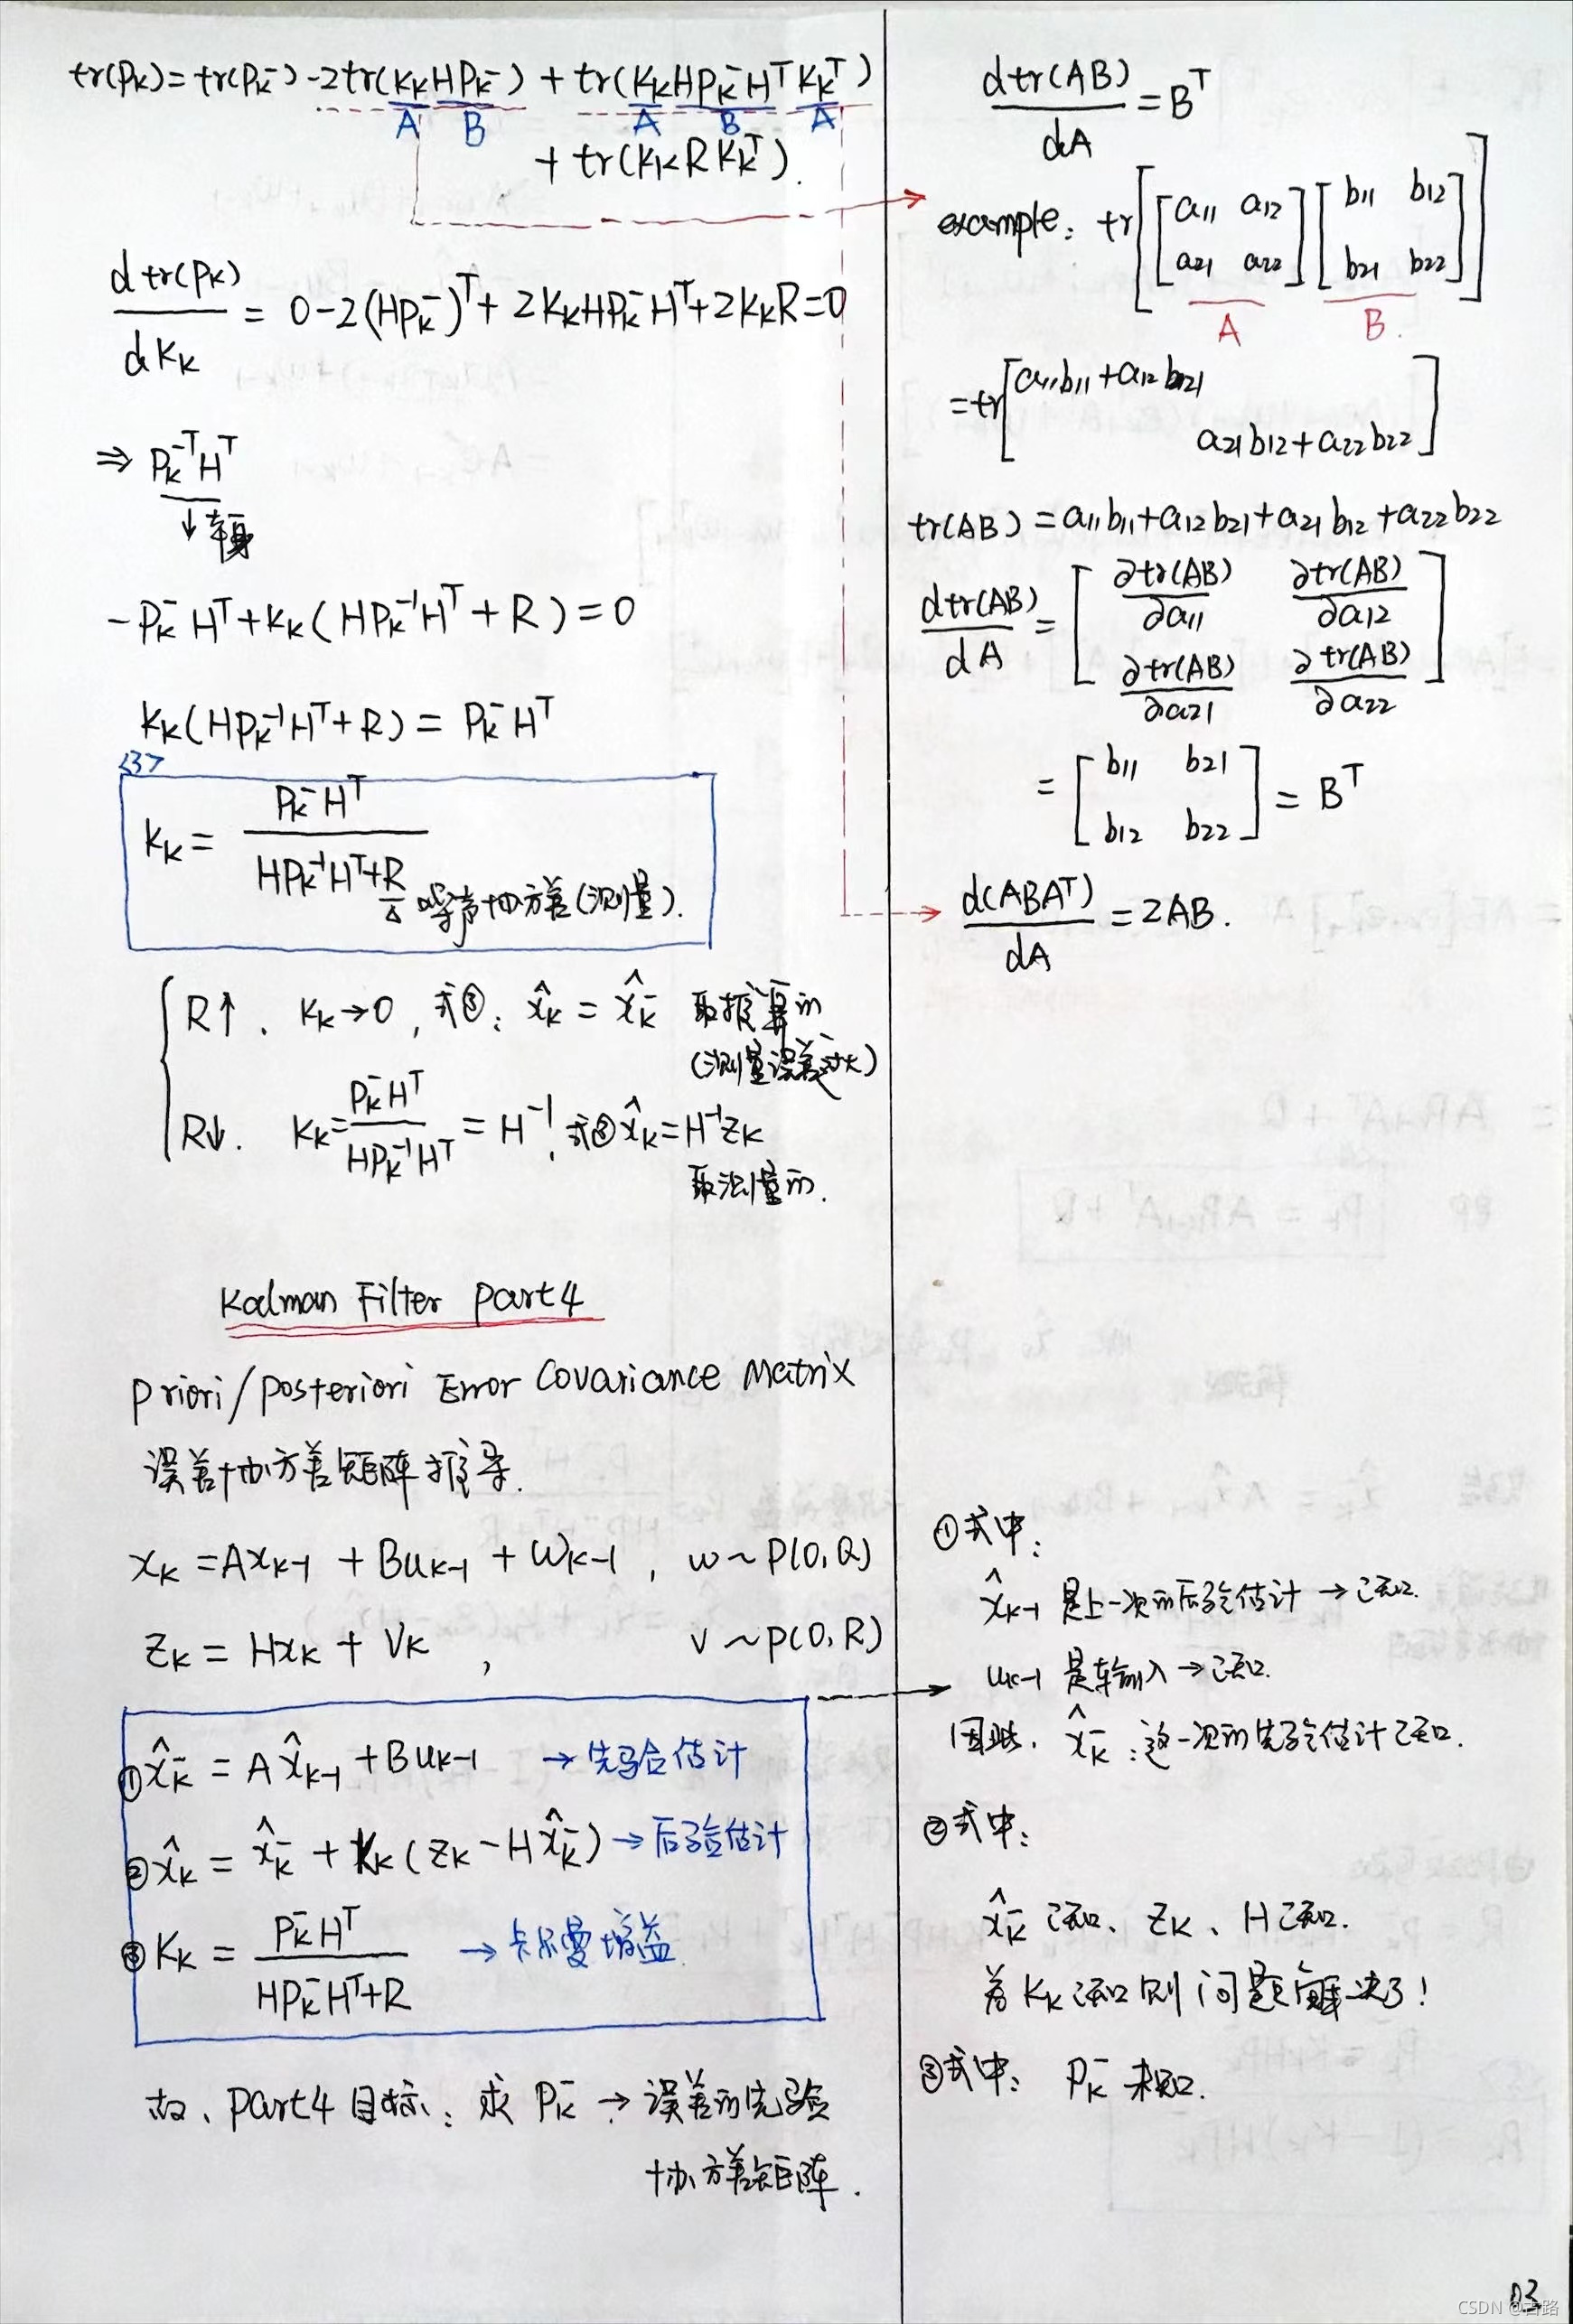 tr(Pk) = tr(Pk⁻) - 2tr(KkHPk⁻) + tr(KkHPk⁻HᵀKkᵀ)
A B A B A
+ tr(KkRKkᵀ).
dtr(Pk)/dKk = 0 - 2(HPk⁻)ᵀ + 2KkHPk⁻Hᵀ + 2KkR = 0
⇒ Pk⁻ᵀHᵀ
↓本身
-Pk⁻Hᵀ + Kk(HPk⁻¹Hᵀ + R) = 0
Kk(HPk⁻¹Hᵀ + R) = Pk⁻Hᵀ
<3>
Kk = Pk⁻Hᵀ / (HPk⁻¹Hᵀ + R)
噪声协方差(测量).
R↑. Kk→0, 式③: x̂k = x̂k⁻ 取推算的
(测量误差过大)
R↓. Kk = Pk⁻Hᵀ / (HPk⁻¹Hᵀ) = H⁻¹, 式③ x̂k = H⁻¹zk
取测量的.
Kalman Filter part4
Priori/Posteriori Error Covariance Matrix
误差协方差矩阵推导.
xk = Axk-1 + Buk-1 + wk-1, w ~ P(0, Q)
zk = Hxk + Vk, v ~ P(0, R)
① x̂k⁻ = Ax̂k-1 + Buk-1 → 先验估计
② x̂k = x̂k⁻ + Kk(zk - Hx̂k⁻) → 后验估计
③ Kk = Pk⁻Hᵀ / (HPk⁻Hᵀ + R) → 卡尔曼增益
故、part4目标: 求 Pk⁻ → 误差的先验
协方差矩阵.
dtr(AB)/dA = Bᵀ
example: tr[[a11 a12; a21 a22][b11 b12; b21 b22]]
A B.
= tr[a11b11 + a12b21
a21b12 + a22b22]
tr(AB) = a11b11 + a12b21 + a21b12 + a22b22
dtr(AB)/dA = [∂tr(AB)/∂a11 ∂tr(AB)/∂a12
∂tr(AB)/∂a21 ∂tr(AB)/∂a22]
= [b11 b21; b12 b22] = Bᵀ
d(ABAᵀ)/dA = 2AB.
①式中:
x̂k-1 是上一次的后验估计 → 已知.
uk-1 是输入 → 已知.
因此. x̂k⁻: 这一次的先验估计已知.
②式中:
x̂k⁻ 已知、zk、H已知.
若Kk已知则问题解决了!
③式中: Pk⁻ 未知.
03
CSDN @古路